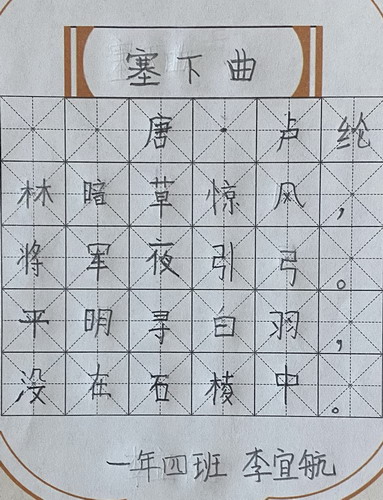 塞下曲
唐·卢纶
林暗草惊风，
将军夜引弓。
平明寻白羽，
没在石棱中。
一年四班 李宜航